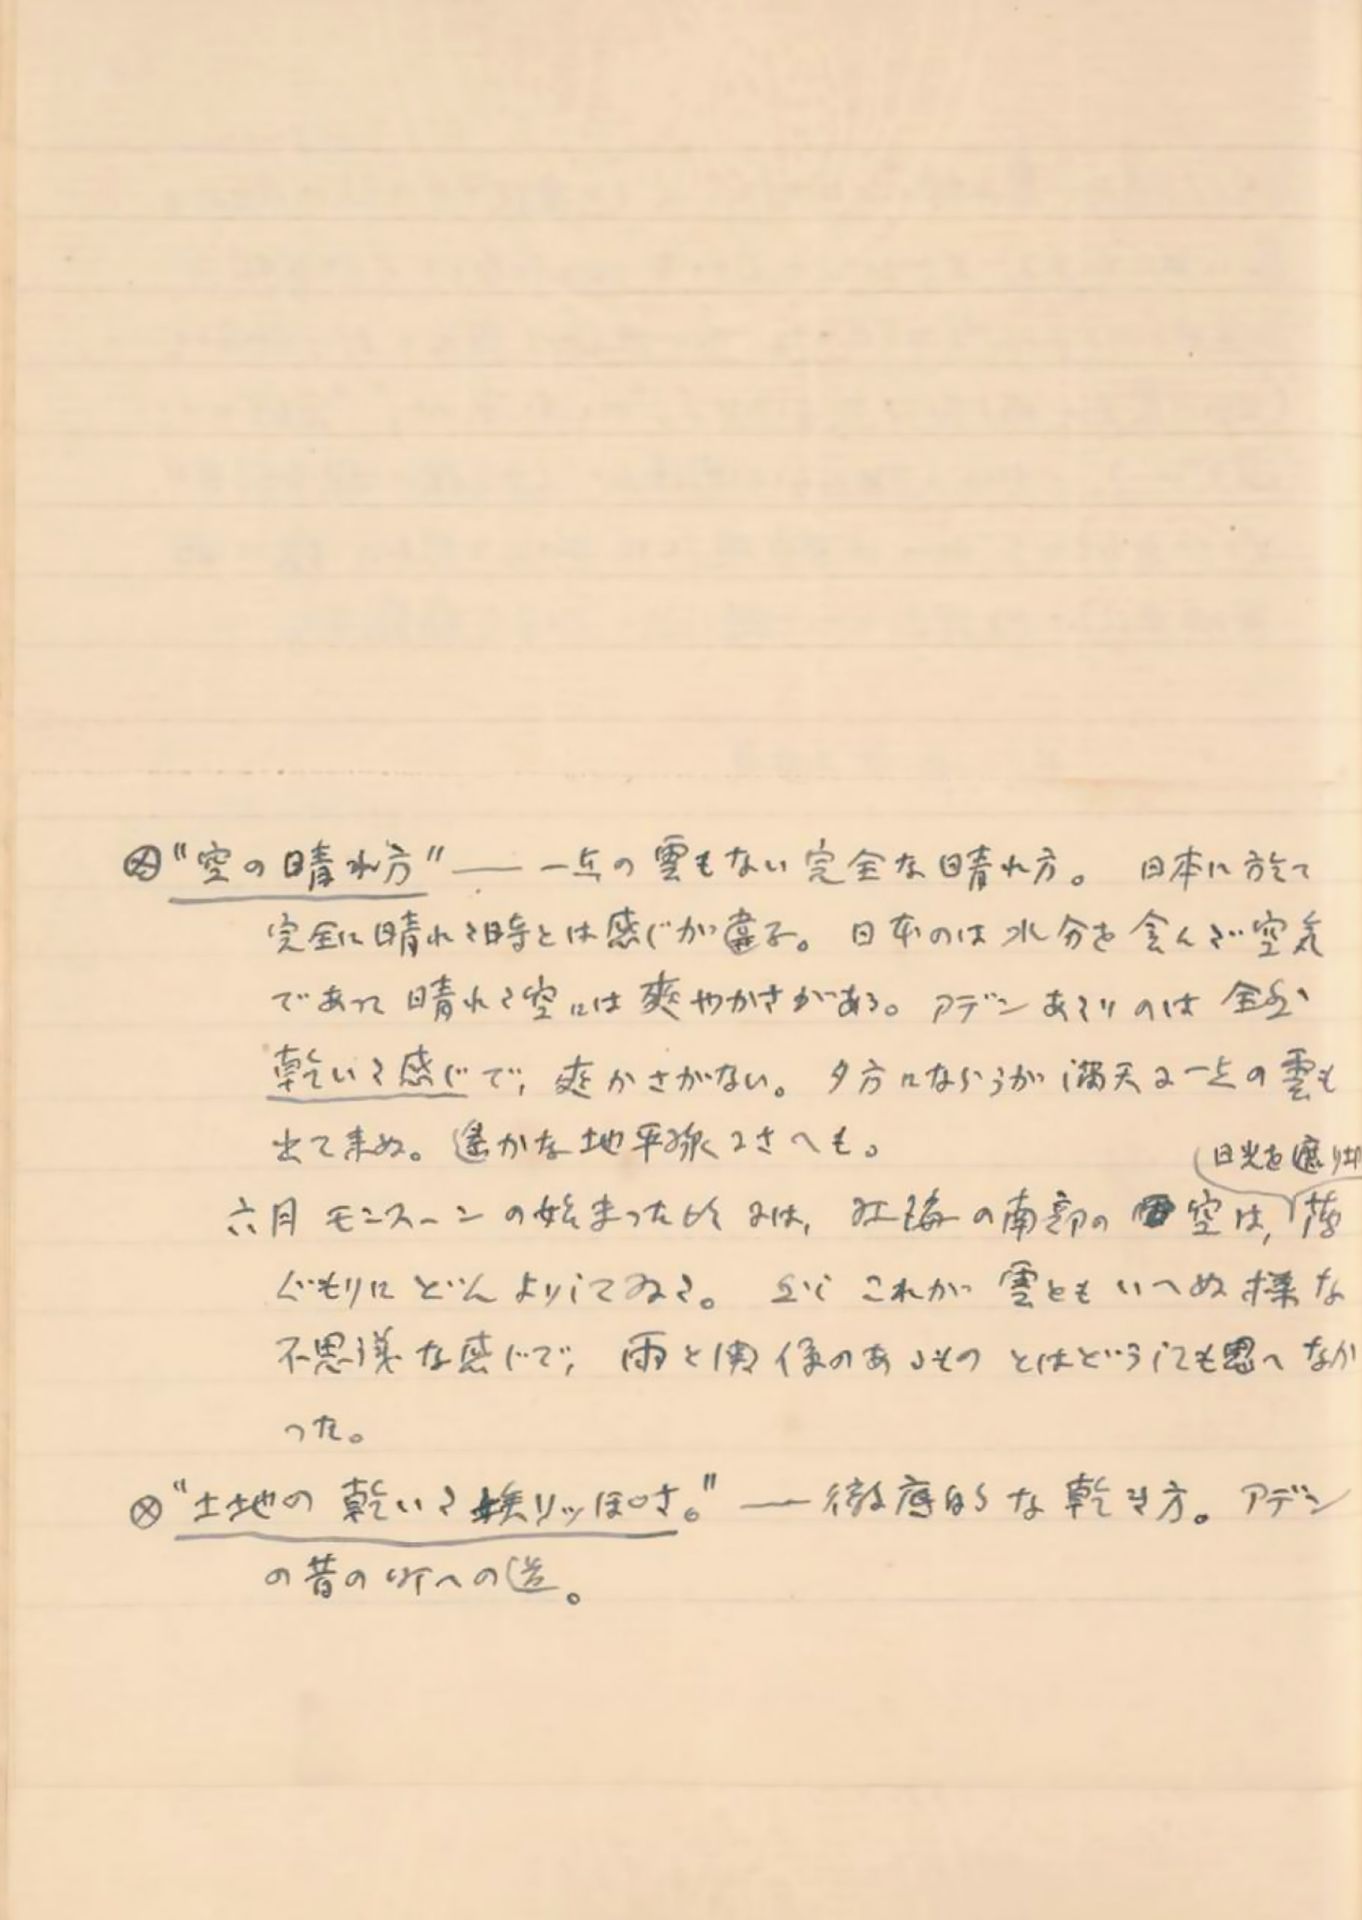 ⊗"空の晴れ方"―― 一点の雲もない完全な晴れ方。 日本に於て
完全に晴れた時とは感じが違ふ。 日本のは水分を含んだ空気
であって晴れた空には爽やかさがある。アデンあたりのは全然
乾いた感じで、爽かさがない。 夕方にならうが満天に一点の雲も
出て来ぬ。遙かな地平線にさへも。
日光を遮り
六月モンスーンの始まった時には、紅海の南部の空は、薄
ぐもりにどんよりしてゐた。 然しこれが雲ともいへぬ様な
不思議な感じで、雨と関係のあるものとはどうしても思へなか
った。
⊗"土地の乾いた埃りッぽさ。"―― 徹底的な乾き方。アデン
の昔の町への道。